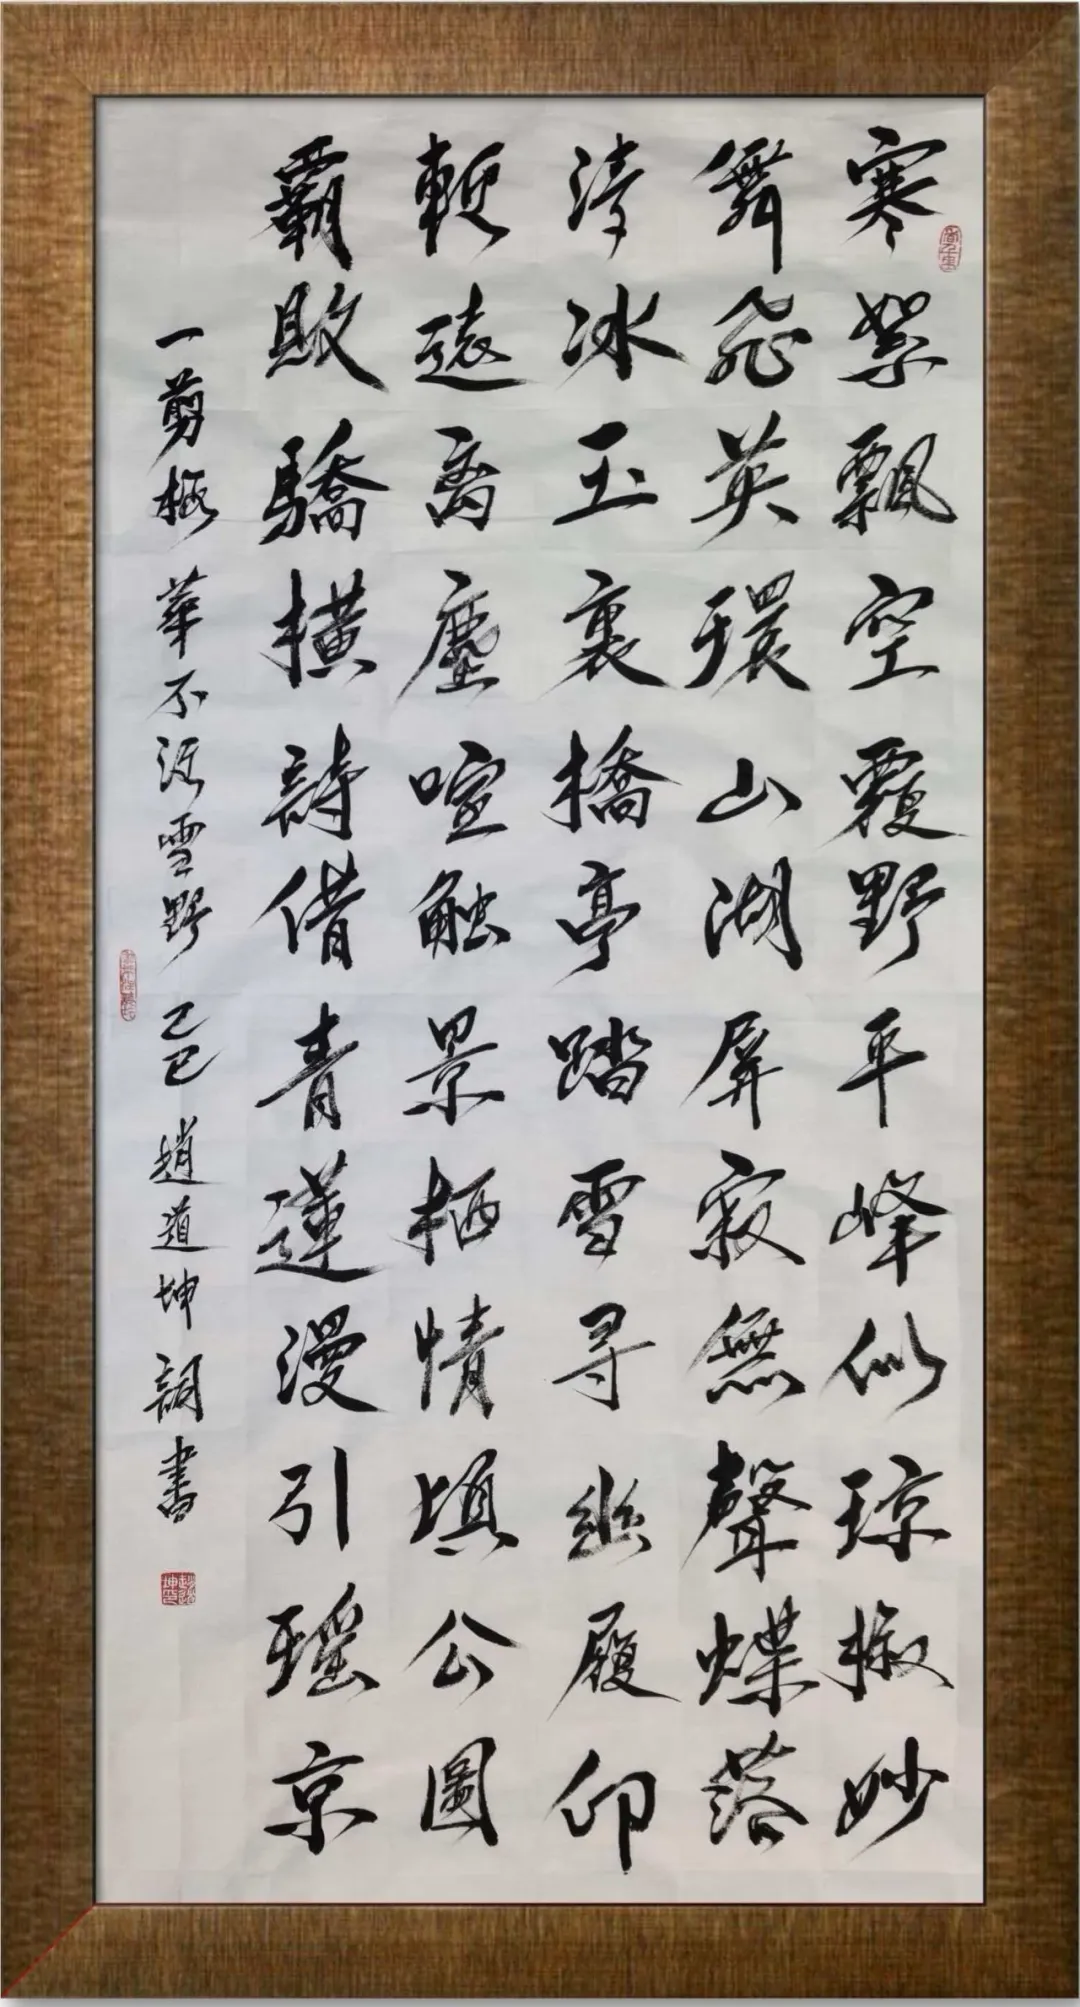 寒絮飄空覆野平峰似琼撒妙
舞飛英環山湖屏寂無聲蝶落
淳冰玉裏橋亭踏雪寻幽履印
暫遠离塵喧触景栖情填公圖
霸敗驕橫詩借青蓮漫引瑶京
一剪梅 華不注雪野 乙巳 趙道坤詞書